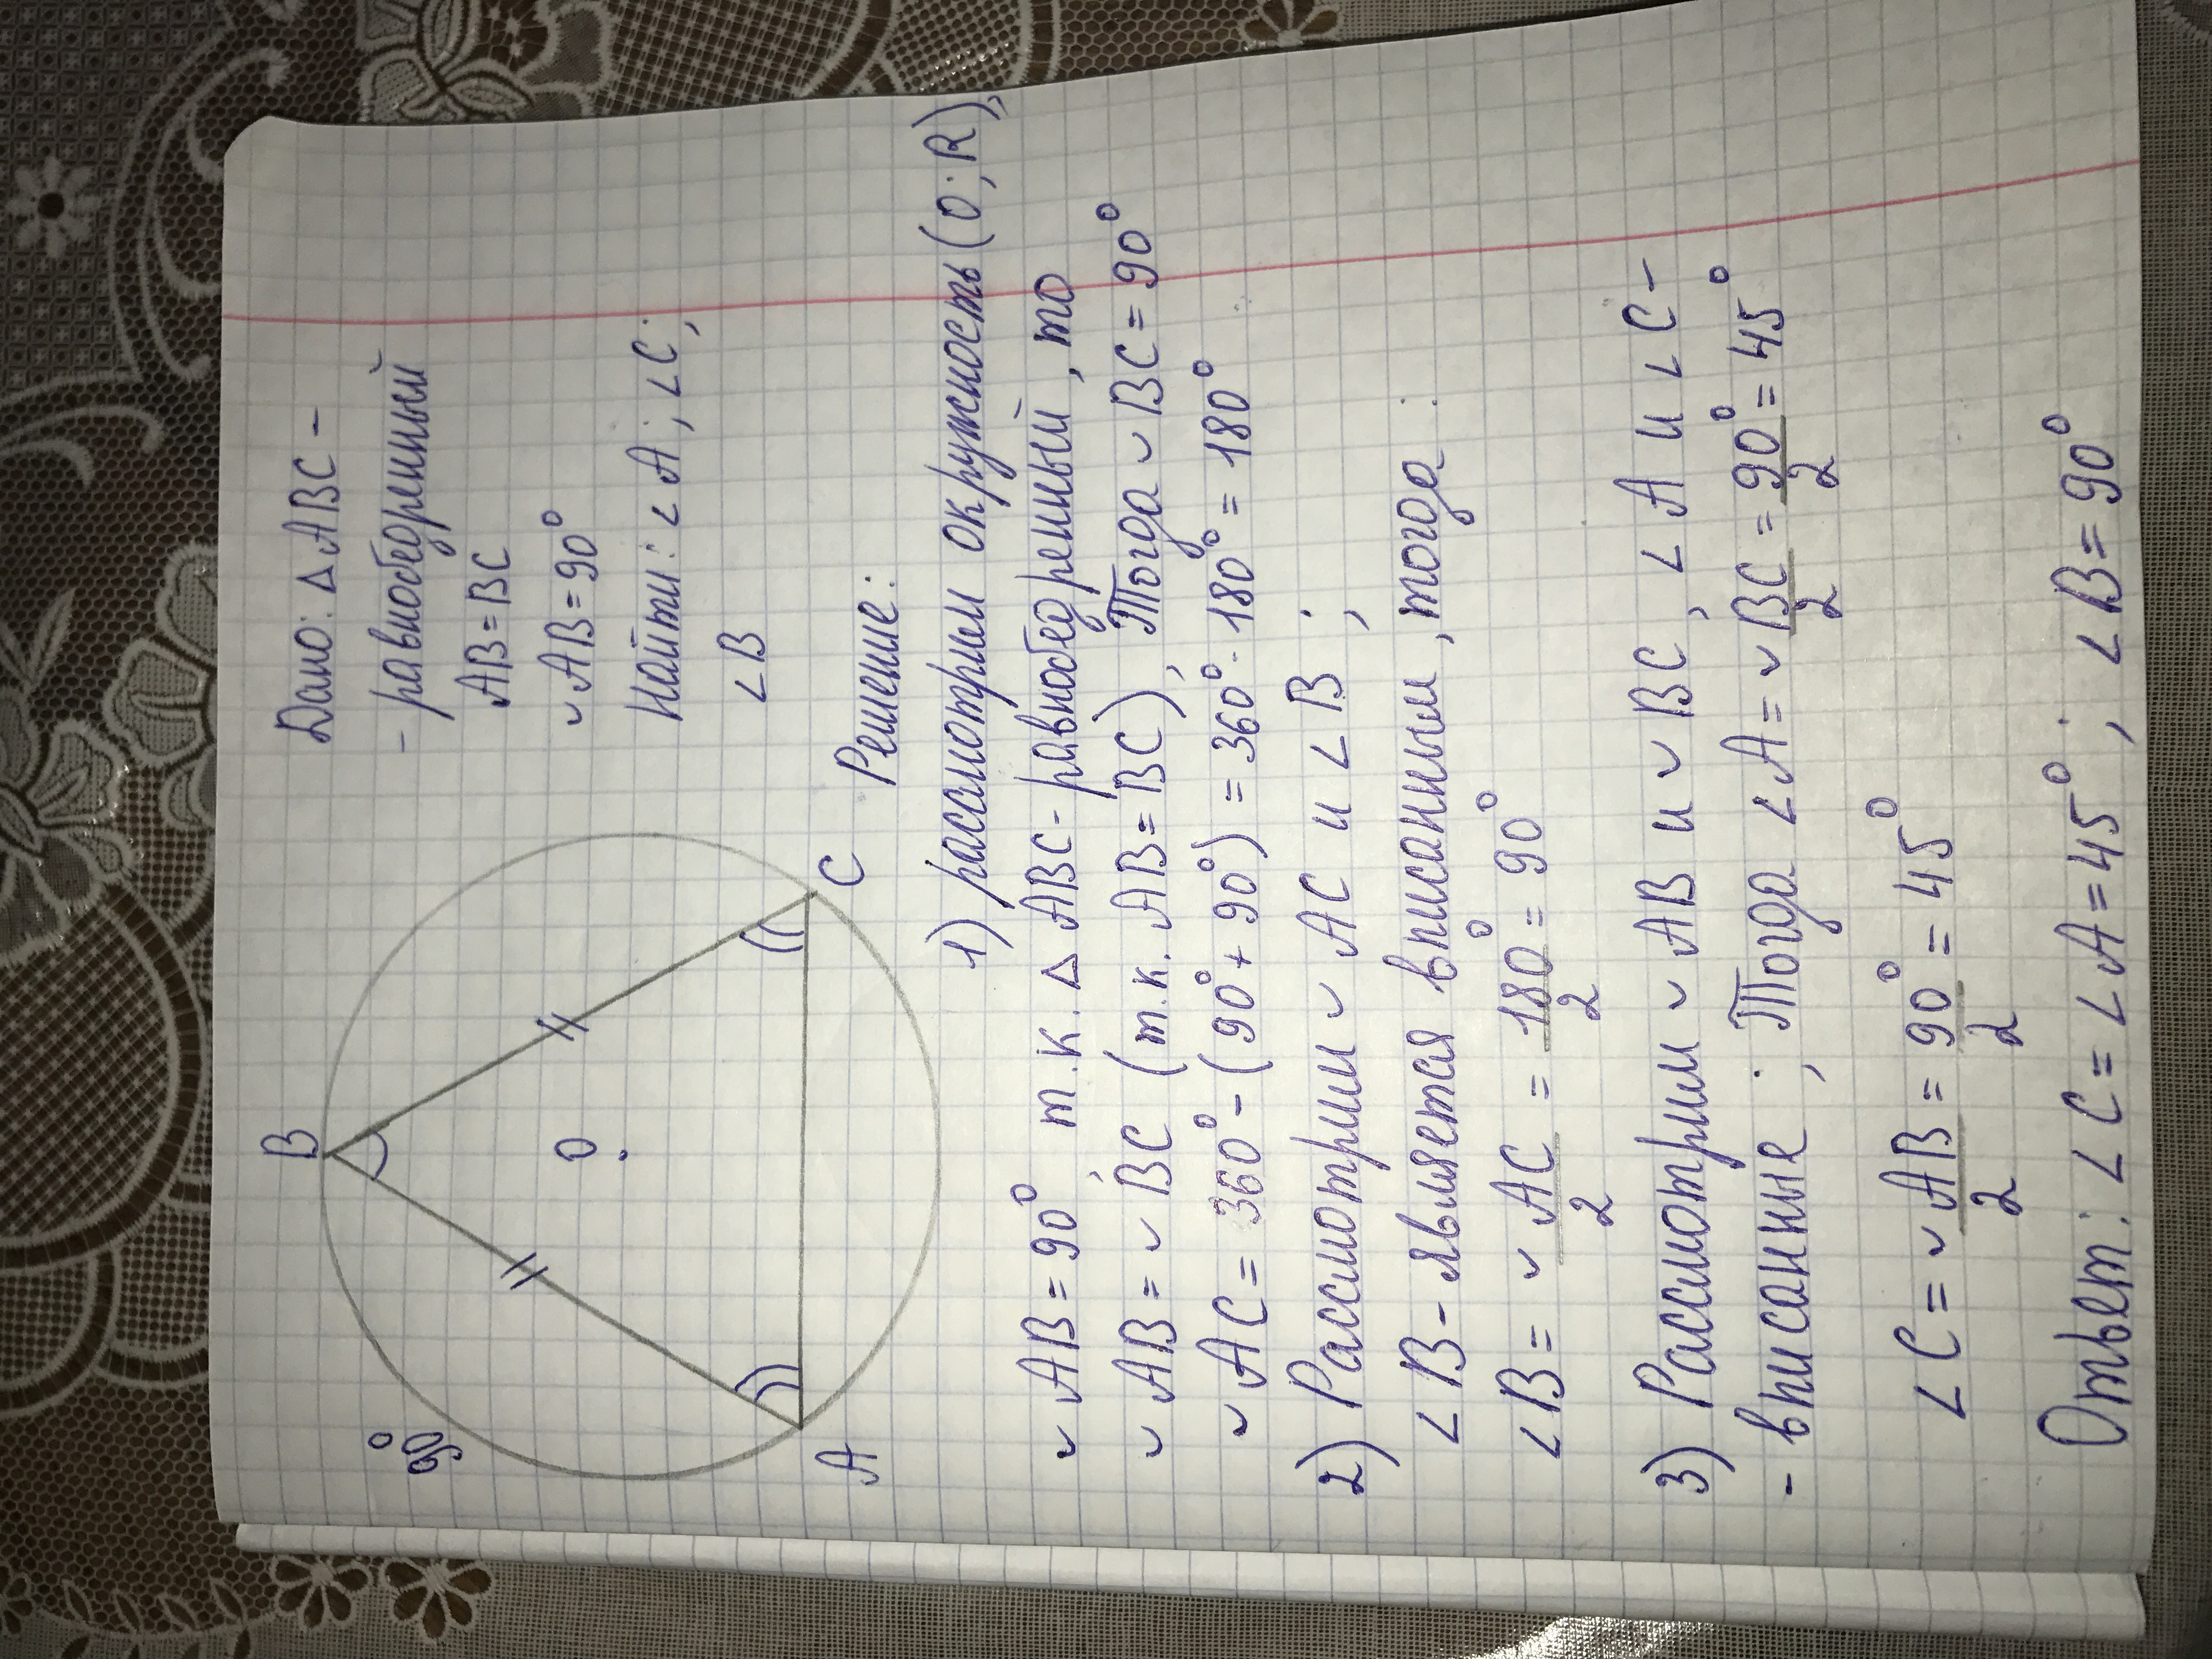 B
90°
O
A
C
Дано: △ABC –
– равнобедренный
AB=BC
◡AB=90°
Найти: ∠A; ∠C;
∠B
Решение:
1) рассмотрим окружность (O; R),
◡AB=90°, т.к. △ABC-равнобедренный, то
◡AB=◡BC (т.к. AB=BC), Тогда ◡BC=90°
◡AC=360°-(90°+90°)=360°-180°=180°
2) Рассмотрим ◡AC и ∠B ;
∠B-является вписанным, тогда :
∠B= ◡AC/2 = 180°/2 = 90°
3) Рассмотрим ◡AB и ◡BC, ∠A и ∠C–
– вписанные ; Тогда ∠A= ◡BC/2 = 90°/2 = 45°
∠C= ◡AB/2 = 90°/2 = 45°
Ответ: ∠C=∠A=45° ; ∠B=90°